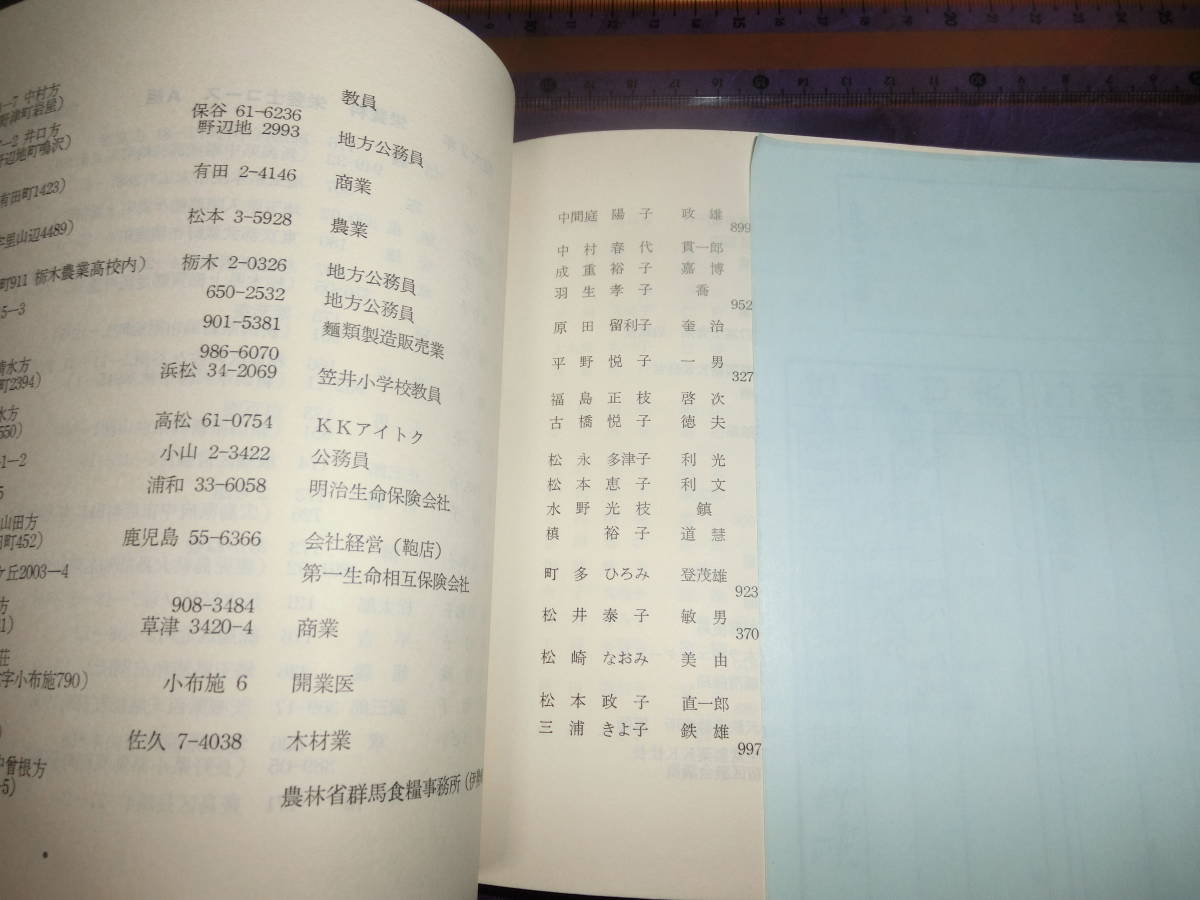 教員
保谷 61-6236
野辺地 2993 地方公務員
有田町1423)
有田 2-4146 商業
里山辺4489)
松本 3-5928 農業
町911 栃木農業高校内) 栃木 2-0326 地方公務員
5-3
650-2532 地方公務員
901-5381 麺類製造販売業
986-6070
清水方
町2394) 浜松 34-2069 笠井小学校教員
水方
550) 高松 61-0754 KKアイトク
-1-2 小山 2-3422 公務員
5 浦和 33-6058 明治生命保険会社
山田方
町452) 鹿児島 55-6366 会社経営(鞄店)
ケ丘2003-4 第一生命相互保険会社
方 908-3484
1) 草津 3420-4 商業
荘
字小布施790) 小布施 6 開業医
佐久 7-4038 木材業
中曾根方
-5) 農林省群馬食糧事務所(伊勢
中間庭 陽子 政雄
899
中村春代 貫一郎
成重裕子 嘉博
羽生孝子 喬
952
原田留利子 奎治
平野悦子 一男
327
福島正枝 啓次
古橋悦子 徳夫
松永多津子 利光
松本恵子 利文
水野光枝 鎮
槙裕子 道慧
町多ひろみ 登茂雄
923
松井泰子 敏男
370
松崎なおみ 美由
松本政子 直一郎
三浦きよ子 鉄雄
997